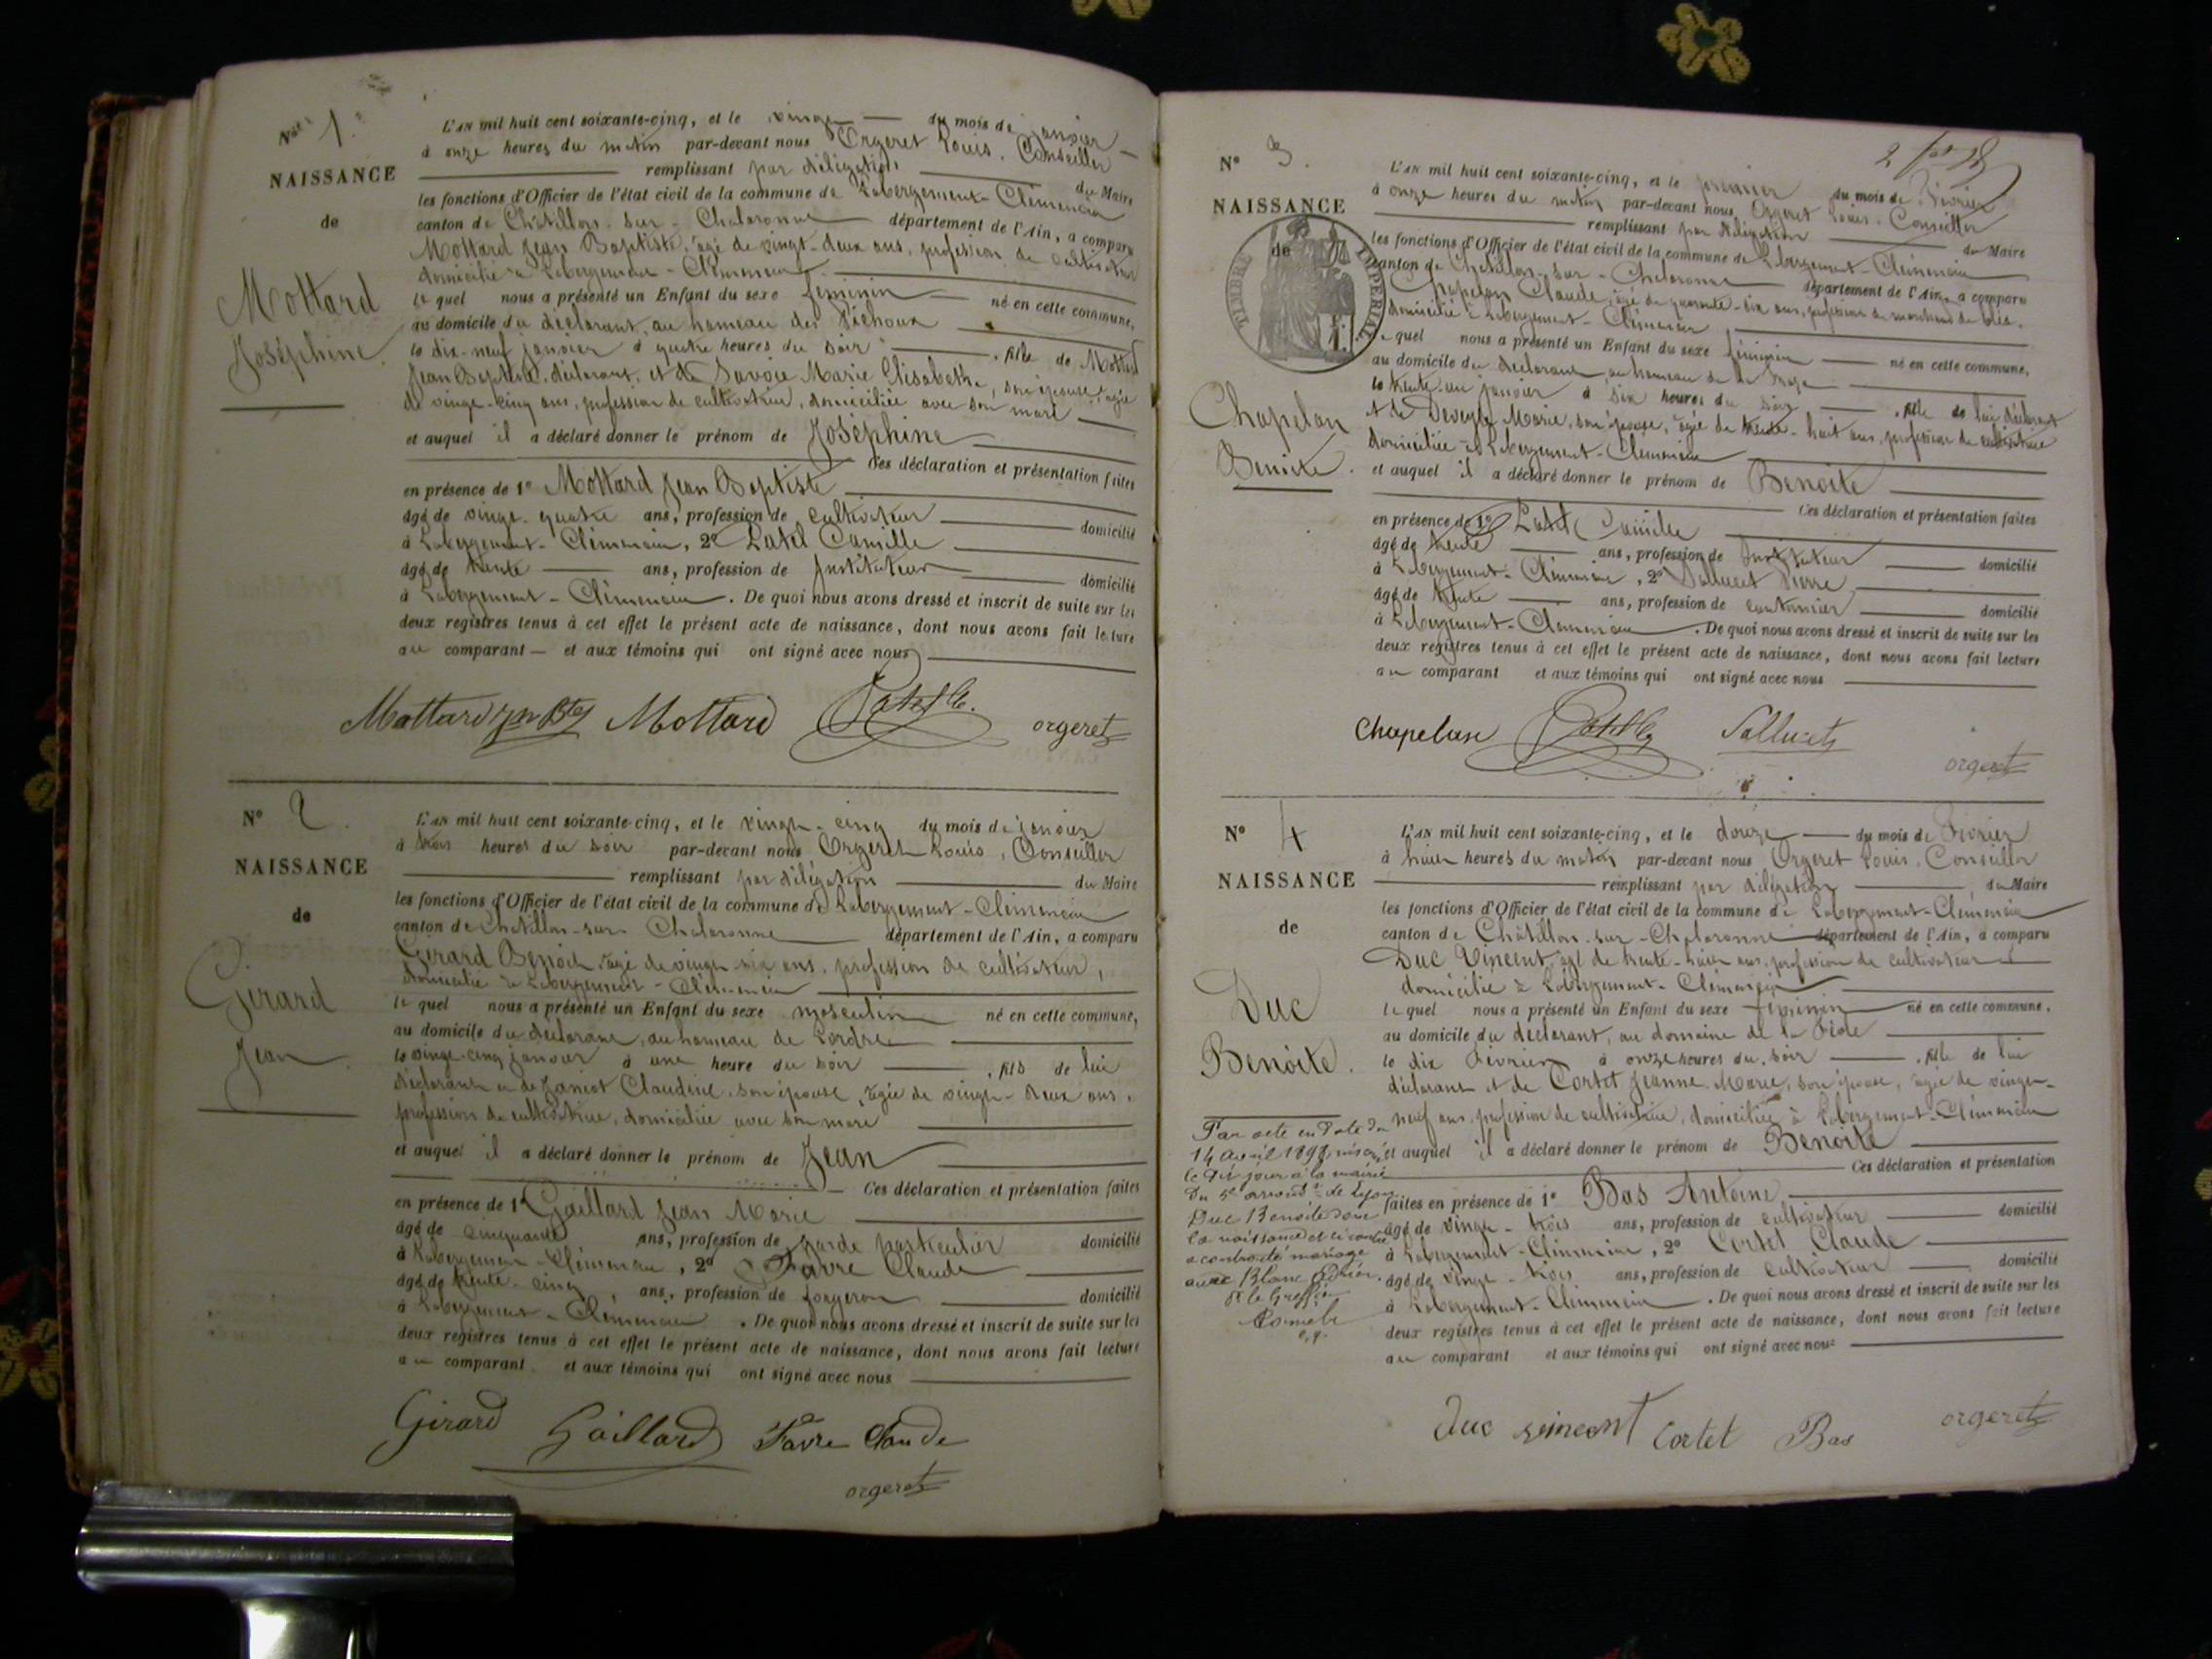 N° 1.
NAISSANCE
de
Mottard
Joséphine.
L'AN mil huit cent soixante-cinq, et le vingt du mois de janvier
à onze heures du matin par-devant nous Orgeret Louis, Conseiller
remplissant par délégation du Maire
les fonctions d'Officier de l'état civil de la commune de Labergement-Clémenciat
canton de Châtillon-sur-Chalaronne département de l'Ain, a comparu
Mottard Jean Baptiste, âgé de vingt-deux ans, profession de cultivateur
domicilié à Labergement-Clémenciat
le quel nous a présenté un Enfant du sexe féminin né en cette commune,
au domicile du déclarant, au hameau des
le dix-neuf janvier à quatre heures du soir, fille de Mottard
Jean Baptiste, déclarant, et de Savoie Marie Elisabeth, son épouse, âgée
de vingt-cinq ans, profession de cultivatrice, domiciliée avec son mari
et auquel il a déclaré donner le prénom de Joséphine
Ces déclaration et présentation faites
en présence de 1° Mottard Jean Baptiste
âgé de vingt-quatre ans, profession de cultivateur domicilié
à Labergement-Clémenciat, 2° Patel Camille
âgé de trente ans, profession de Instituteur domicilié
à Labergement-Clémenciat. De quoi nous avons dressé et inscrit de suite sur les
deux registres tenus à cet effet le présent acte de naissance, dont nous avons fait lecture
au comparant et aux témoins qui ont signé avec nous
Mottard jn Bte Mottard Patel C. orgeret
N° 2.
NAISSANCE
de
Girard
Jean
L'AN mil huit cent soixante-cinq, et le vingt-cinq du mois de janvier
à trois heures du soir par-devant nous Orgeret Louis, Conseiller
remplissant par délégation du Maire
les fonctions d'Officier de l'état civil de la commune de Labergement-Clémenciat
canton de Châtillon-sur-Chalaronne département de l'Ain, a comparu
Girard Benoit, âgé de vingt-six ans, profession de cultivateur,
domicilié à Labergement-Clémenciat
le quel nous a présenté un Enfant du sexe masculin né en cette commune,
au domicile du déclarant, au hameau de
le vingt-cinq janvier à une heure du soir, fils de lui
déclarant et de Janiot Claudine, son épouse, âgée de vingt-deux ans,
profession de cultivatrice, domiciliée avec son mari
et auquel il a déclaré donner le prénom de Jean
Ces déclaration et présentation faites
en présence de 1° Gaillard Jean Marie
âgé de cinquante ans, profession de garde particulier domicilié
à Labergement-Clémenciat, 2° Favre Claude
âgé de trente-cinq ans, profession de forgeron domicilié
à Labergement-Clémenciat. De quoi nous avons dressé et inscrit de suite sur les
deux registres tenus à cet effet le présent acte de naissance, dont nous avons fait lecture
au comparant et aux témoins qui ont signé avec nous
Girard Gaillard Favre Claude
orgeret
N° 3.
NAISSANCE
de
TIMBRE IMPERIAL
Chapelan
Benoite.
L'AN mil huit cent soixante-cinq, et le premier du mois de Février
à onze heures du matin par-devant nous Orgeret Louis, Conseiller
remplissant par délégation du Maire
les fonctions d'Officier de l'état civil de la commune de Labergement-Clémenciat
canton de Châtillon-sur-Chalaronne département de l'Ain, a comparu
Chapelan Claude, âgé de quarante-six ans, profession de marchand de blés,
domicilié à Labergement-Clémenciat
le quel nous a présenté un Enfant du sexe féminin né en cette commune,
au domicile du déclarant, au hameau de la
le trente-un janvier à six heures du soir, fille de lui déclarant
et de Marie, son épouse, âgée de trente-huit ans, profession de cultivatrice
domiciliée à Labergement-Clémenciat
et auquel il a déclaré donner le prénom de Benoite
Ces déclaration et présentation faites
en présence de 1° Patel Camille
âgé de trente ans, profession de Instituteur domicilié
à Labergement-Clémenciat, 2° Salluet Pierre
âgé de trente ans, profession de cantonnier domicilié
à Labergement-Clémenciat. De quoi nous avons dressé et inscrit de suite sur les
deux registres tenus à cet effet le présent acte de naissance, dont nous avons fait lecture
au comparant et aux témoins qui ont signé avec nous
Chapelan Patel C. Salluet
orgeret
N° 4
NAISSANCE
de
Duc
Benoite.
L'AN mil huit cent soixante-cinq, et le douze du mois de Février
à huit heures du matin par-devant nous Orgeret Louis, Conseiller
remplissant par délégation du Maire
les fonctions d'Officier de l'état civil de la commune de Labergement-Clémenciat
canton de Châtillon-sur-Chalaronne département de l'Ain, a comparu
Duc Vincent, âgé de trente-huit ans, profession de cultivateur
domicilié à Labergement-Clémenciat
le quel nous a présenté un Enfant du sexe féminin né en cette commune,
au domicile du déclarant, au domaine de la
le dix Février à onze heures du soir, fille de lui
déclarant et de Cortet Jeanne Marie, son épouse, âgée de vingt-
neuf ans, profession de cultivatrice, domiciliée à Labergement-Clémenciat
et auquel il a déclaré donner le prénom de Benoite
Ces déclaration et présentation
faites en présence de 1° Bas Antoine
âgé de vingt-trois ans, profession de cultivateur domicilié
à Labergement-Clémenciat, 2° Cortet Claude
âgé de vingt-trois ans, profession de cultivateur domicilié
à Labergement-Clémenciat. De quoi nous avons dressé et inscrit de suite sur les
deux registres tenus à cet effet le présent acte de naissance, dont nous avons fait lecture
au comparant et aux témoins qui ont signé avec nous
Par acte en date du
14 avril inscrit
le dit jour à la mairie
du 5e arrondt de Lyon
Duc Benoite dont
la naissance est ci contre
a contracté mariage
avec Blanc
Pr le Greffier
Duc veincent Cortet Bas orgeret